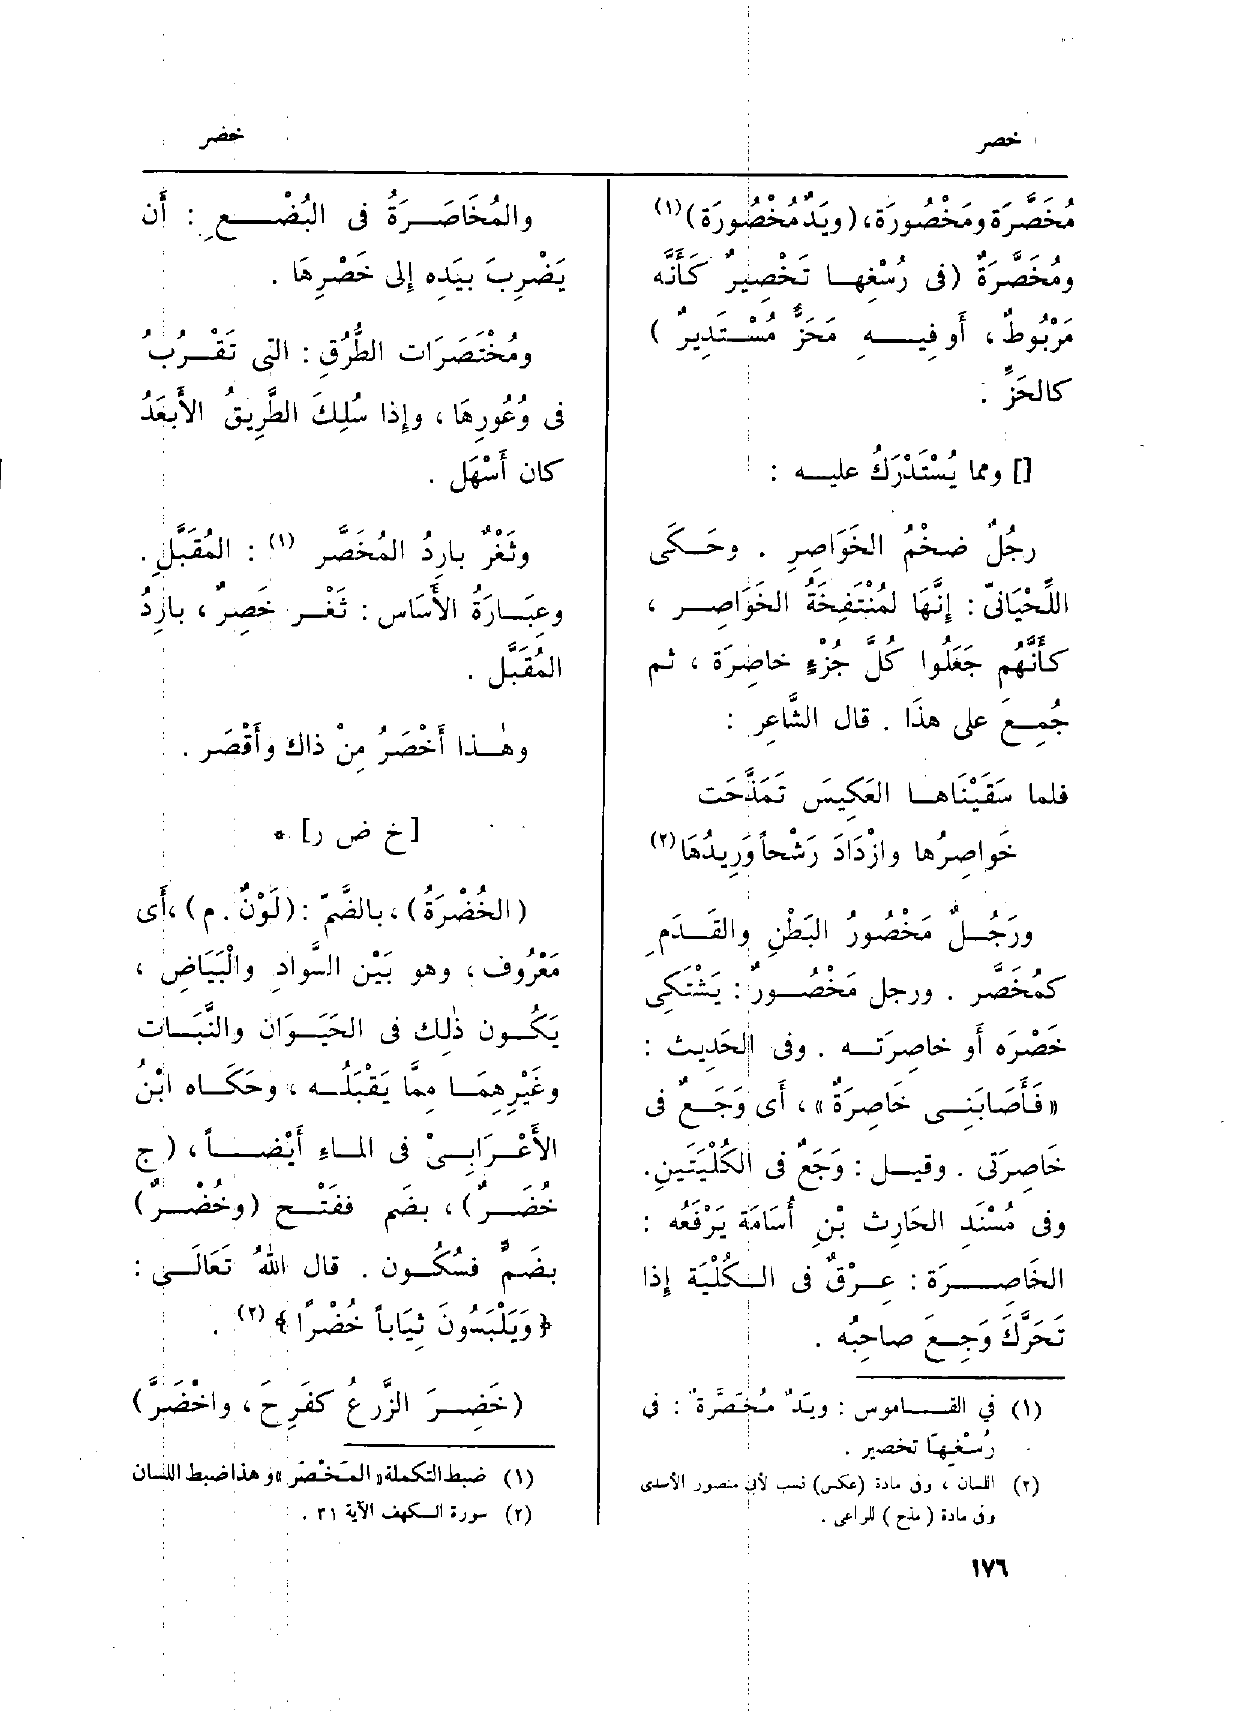 خصر
خضر
مُخَصَّرَة ومَخْصُورَة، (ويَدٌ مَخْصُورَة)(١)
ومُخَصَّرَةٌ (فى رُسْغِها تَخْصِيرٌ كَأَنَّه
مَرْبُوطٌ، أو فيه مَحَزٌّ مُسْتَدِيرٌ)
كالحَزِّ .
[] ومما يُسْتَدْرَكُ عليه :
رجُلٌ ضخمُ الخَوَاصِرِ . وحَكَى
اللِّحْيَانِىّ : إنَّهَا لمُنْتَفِخَةُ الخَوَاصِر ،
كَأَنَّهُم جَعَلُوا كُلَّ جُزْءٍ خاصِرَة ، ثم
جُمِعَ على هذَا . قال الشَّاعِر :
فلما سَقَيْنَاها العَكِيسَ تَمَذَّحَت
خَواصِرُها وازْدَادَ رَشْحاً وَرِيدُهَا(٢)
ورَجُلٌ مَخْصُورُ البَطْنِ والقَدَمِ
كمُخَصَّر . ورجل مَخْصُورٌ : يَشْتَكِى
خَصْرَه أو خاصِرَتَه . وفى الحَدِيث :
«فَأَصَابَنِى خَاصِرَةٌ» ، أى وَجَع فى
خَاصِرَتى . وقيل : وَجَعٌ فى الكُلْيَتَينِ .
وفى مُسْنَدِ الحَارِث بْنِ أُسَامَة يَرْفَعُه :
الخَاصِرَة : عِرْقٌ فى الكُلْيَة إذا
تَحَرَّكَ وَجِعَ صاحِبُه .
(١) في القاموس : ويَدٌ مُخَصَّرَةٌ : فى
رُسْغِهَا تخصير .
(٢) اللسان ، وفى مادة (عكس) نسب لأبى منصور الأسدى
وفى مادة (مذح) للراعى .
والمُخَاصَرَةُ فى البُضْعِ : أَن
يَضْرِبَ بيَدِه إلى خَصْرِهَا .
ومُخْتَصَرَات الطُّرُقِ : التى تَقْرُبُ
فى وُعُورِهَا ، وإذا سُلِكَ الطَّرِيقُ الأَبعَدُ
كان أَسْهَل .
وثَغْرٌ بارِدُ المُخَصَّر (١) : المُقَبَّلِ .
وعِبَارَةُ الأَسَاس : ثَغْر خَصِرٌ ، بارِدُ
المُقَبَّل .
وهٰذا أَخْصَرُ مِنْ ذاك وأَقْصَر .
[خ ض ر] *
(الخُضْرَةُ) ، بالضَّمّ : (لَوْنٌ . م) ، أى
مَعْرُوف ، وهو بَيْن السَّوادِ والْبَيَاضِ ،
يَكُون ذٰلِك فى الحَيَوَان والنَّبَات
وغَيْرِهِمَا مِمَّا يَقْبَلُه ، وحَكَاه ابْنُ
الأَعْرَابِىْ فى الماءِ أَيْضاً ، (ج
خُضَرٌ) ، بضم ففَتْح (وخُضْرٌ)
بضَمٍّ فسُكُون . قال اللهُ تَعَالَى :
﴿وَيَلْبَسُونَ ثِيَاباً خُضْرًا﴾(٢) .
(خَضِرَ الزَّرعُ كفَرِحَ ، واخْضَرَّ)
(١) ضبط التكملة «المَخْصَر» وهذا ضبط اللسان
(٢) سورة الكهف الآية ٣١ .
١٧٦